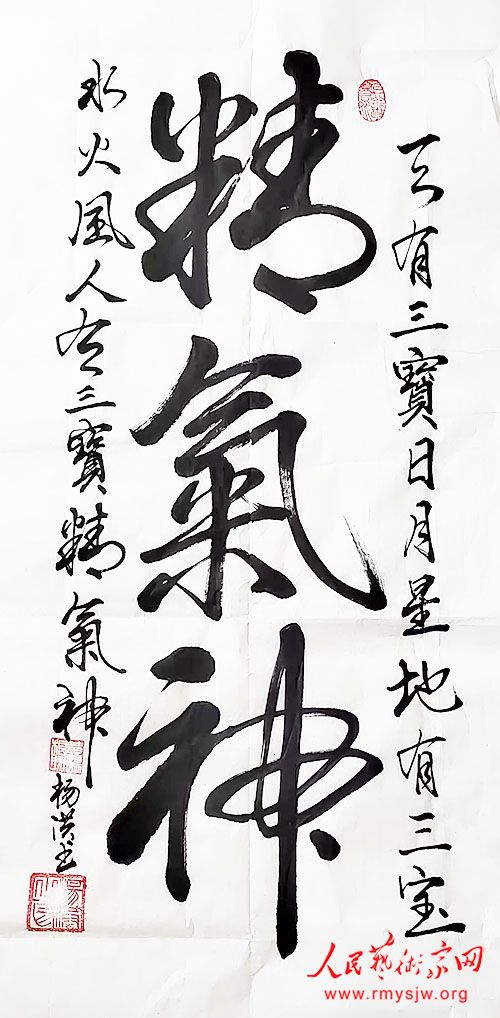 天有三寶日月星地有三宝
精氣神
水火風人有三寶精氣神
杨洪玉
人民藝術家网
www.rmysjw.org